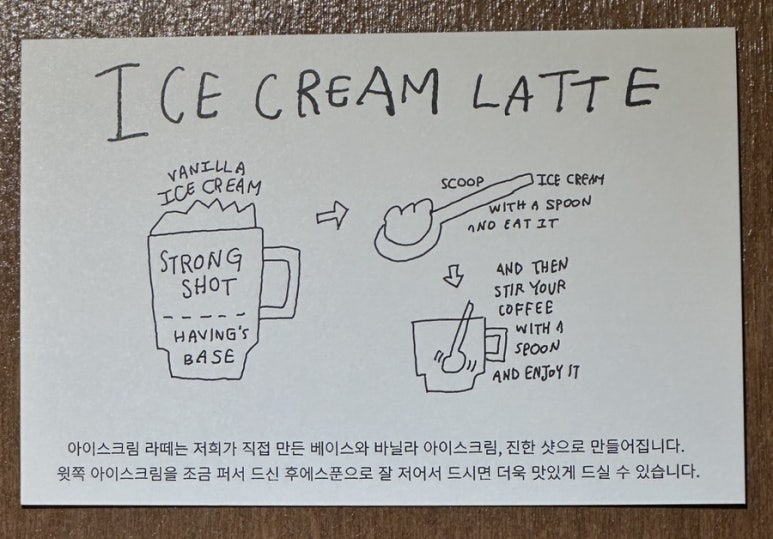 ICE CREAM LATTE
VANILLA
ICE CREAM
STRONG
SHOT
HAVING'S
BASE
SCOOP ICE CREAM
WITH A SPOON
AND EAT IT
AND THEN
STIR YOUR
COFFEE
WITH A
SPOON
AND ENJOY IT
아이스크림 라떼는 저희가 직접 만든 베이스와 바닐라 아이스크림, 진한 샷으로 만들어집니다.
윗쪽 아이스크림을 조금 퍼서 드신 후에스푼으로 잘 저어서 드시면 더욱 맛있게 드실 수 있습니다.